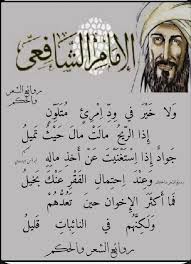 الإمام الشافعي
روائع الشعر
والحكم
وَلا خَيْرَ في وِدِّ اِمرِئٍ مُتَلَوِّنٍ
إِذا الرِيحُ مالَت مالَ حَيثُ تَميلُ
جَوادٌ إِذا اِستَغنَيتَ عَن أَخذِ مالِهِ
وَعِندَ اِحتِمالِ الفَقرِ عَنكَ بَخيلُ
فَما أَكثَرَ الإِخوانَ حينَ تَعُدُّهُم
وَلَكِنَّهُم في النائِباتِ قَليلُ
روائع الشعر والحكم